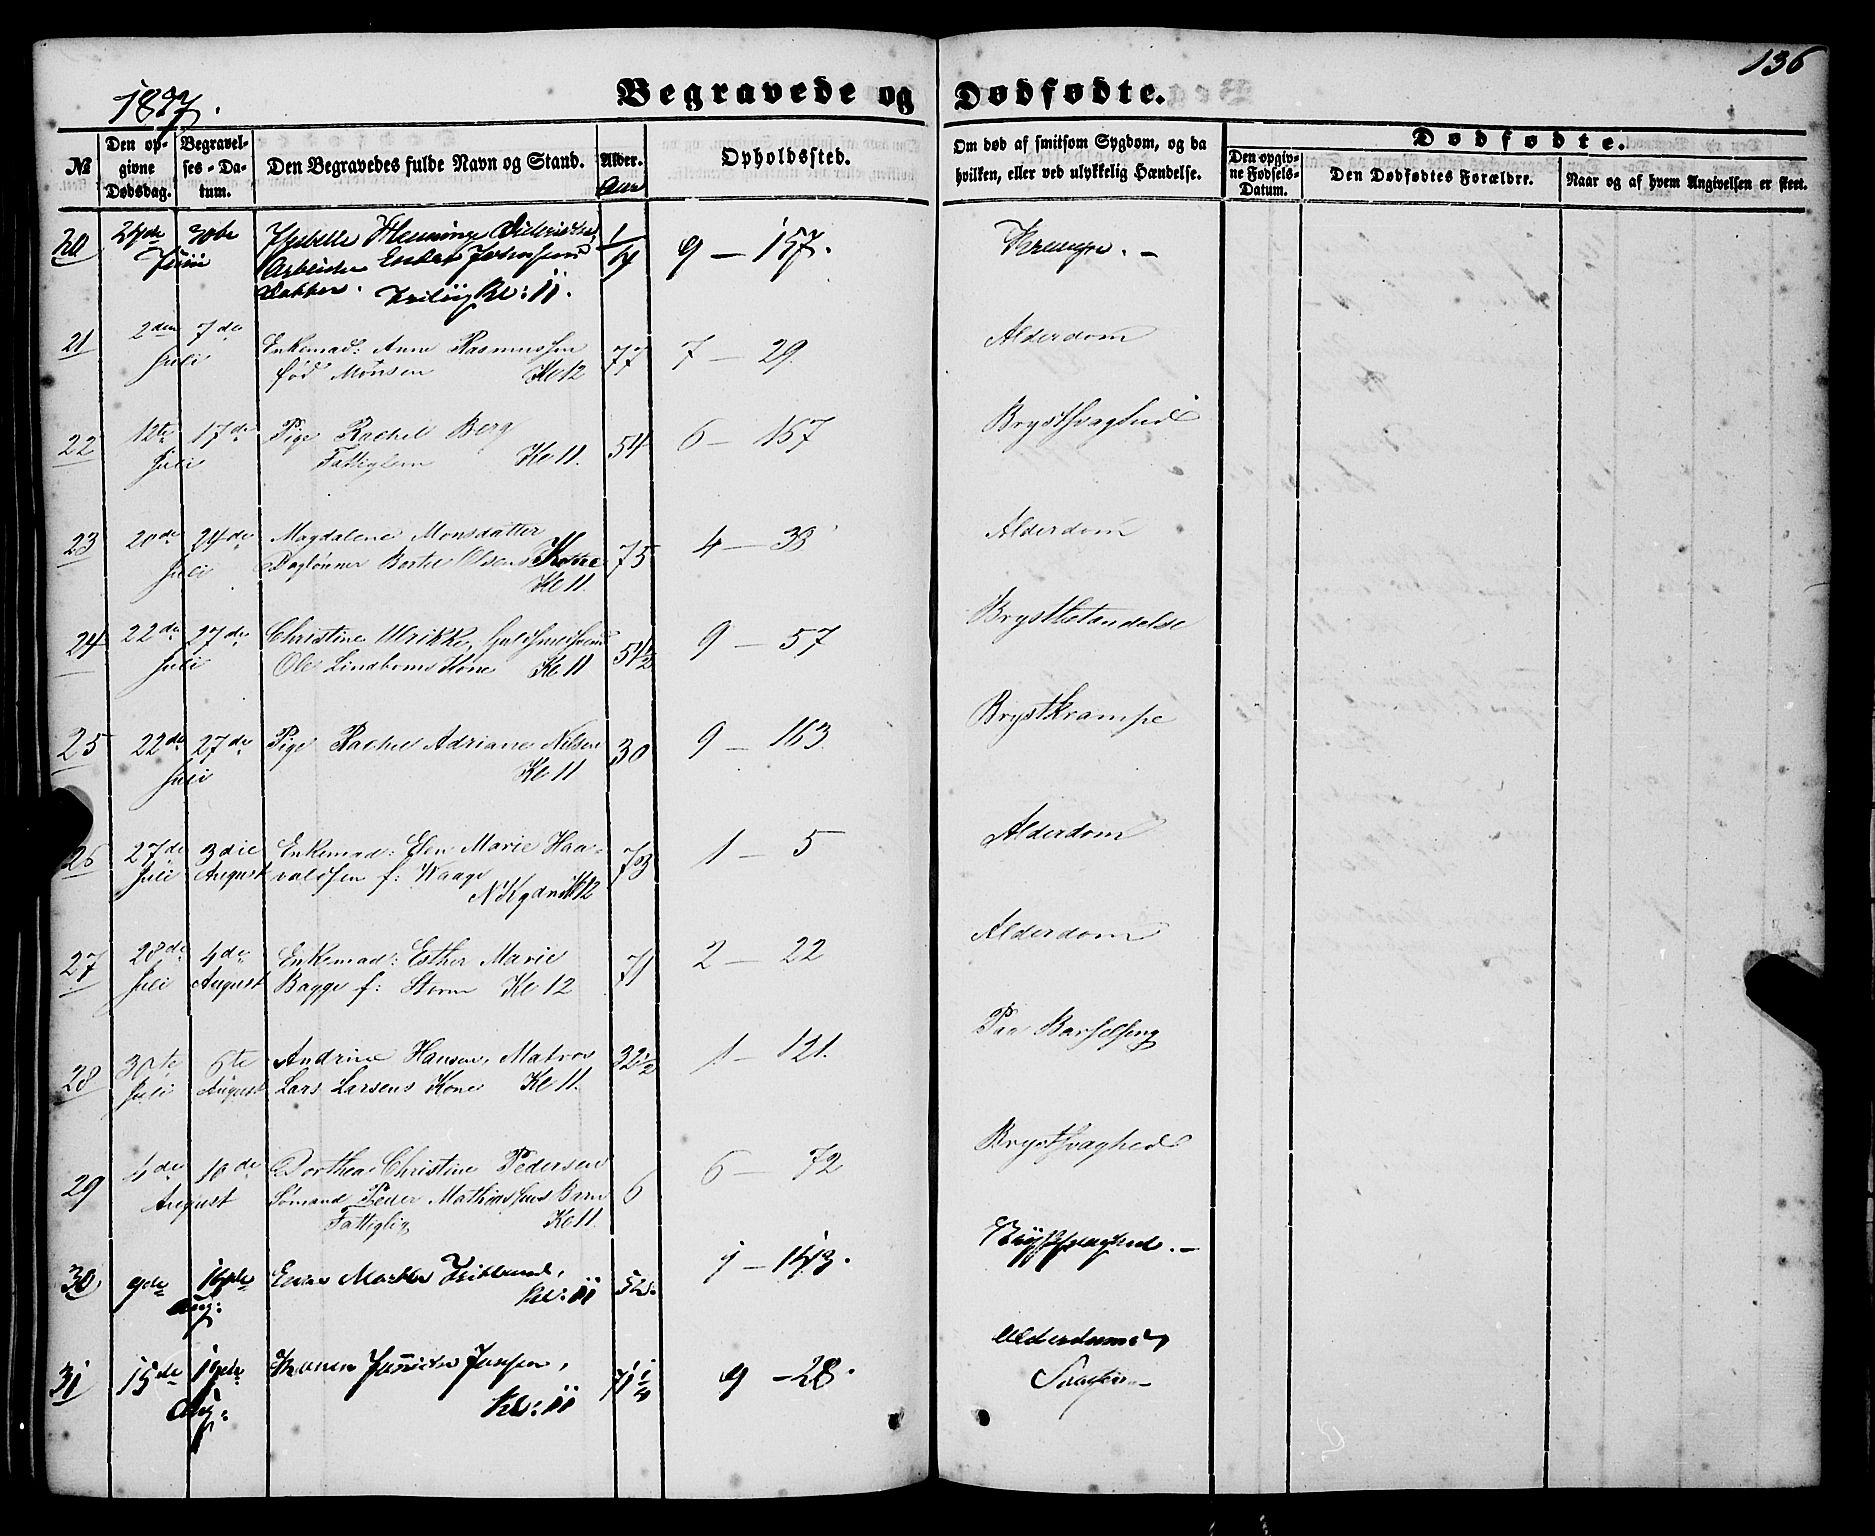 136
1877.
Begravede og Dødfødte.
№
Den op-
givne
Dødsdag.
Begravel-
ses-Da-
tum.
Den Begravedes fulde Navn og Stand.
Alder.
Aar
Opholdssted.
Om død af smitsom Sygdom, og da
hvilken, eller ved ulykkelig Hændelse.
Dødfødte.
Den opgiv-
ne Fødsels-
Datum.
Den Dødfødtes Forældre.
Naar og af hvem Angivelsen er skeet.
20 30te Henninge 1/4 9 – 157. Krampe. –
Juni Arbeider
Datter. Kl: 11.
21 2den 7de Enkemad: Anne Rasmussen 77 7 – 29. Alderdom
Juli fød Monsen Kl 12
22 12te 17de Pige Rachel Berg 54 6 – 157 Brystsvaghed
Juli Fattiglem Kl 11.
23 20de 24de Magdalene Monsdatter 75 4 – 38 Alderdom
Juli Daglønner Bertel Olsens Kone
Kl 11.
24 22de 27de Christine Ulrikke, Guldsmedsvend 51 1/2 9 – 57 Brystbetændelse
Juli Ole Lindboms Kone Kl 11
25 22de 27de Pige Rachel Adriane Nilsen 30 9 – 163. Brystkrampe
Juli Kl 11
26 27de 3die Enkemad: Elen Marie Haa- 73 1 – 5 Alderdom
Juli August valdsen f: Kaage
Kl 12
27 28de 4de Enkemad: Esther Marie 71 2 – 22 Alderdom
Juli August Bagge f: Storm Kl 12
28 30te 6te Andrine Hansen, Matros 32 1/2 1 – 121. Paa Barselseng
Juli August Lars Larsens Kone Kl 11.
29 4de 10de Dorthea Christine Pedersen 6 6 – 72 Brystsvaghed
August Sømand Peder Mathiassens Barn
Fattiglig Kl 11.
30 9de 16de 52. 1 – 143. Brystsvaghed. –
Aug: Kl: 11
31 15de Jensen, 71 1/4 9 – 28. Alderdoms
Aug: Kl: 11